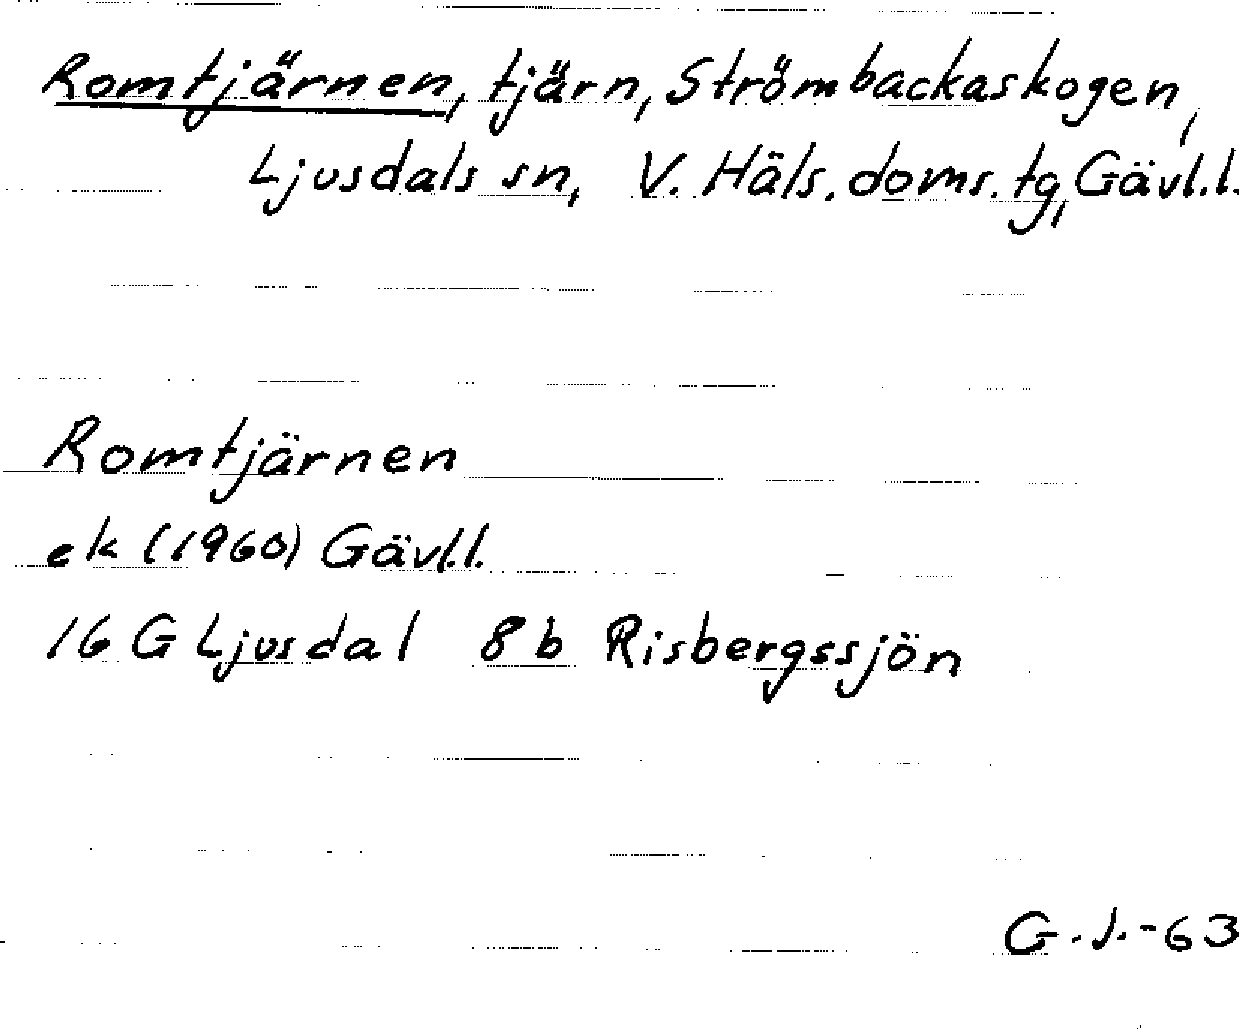 Romtjärnen, tjärn, Strömbackaskogen,
Ljusdals sn, V. Häls. doms. tg, Gävl.l.
Romtjärnen
ek (1960) Gävl.l.
16 G Ljusdal 8 b Risbergssjön
G.J.-63